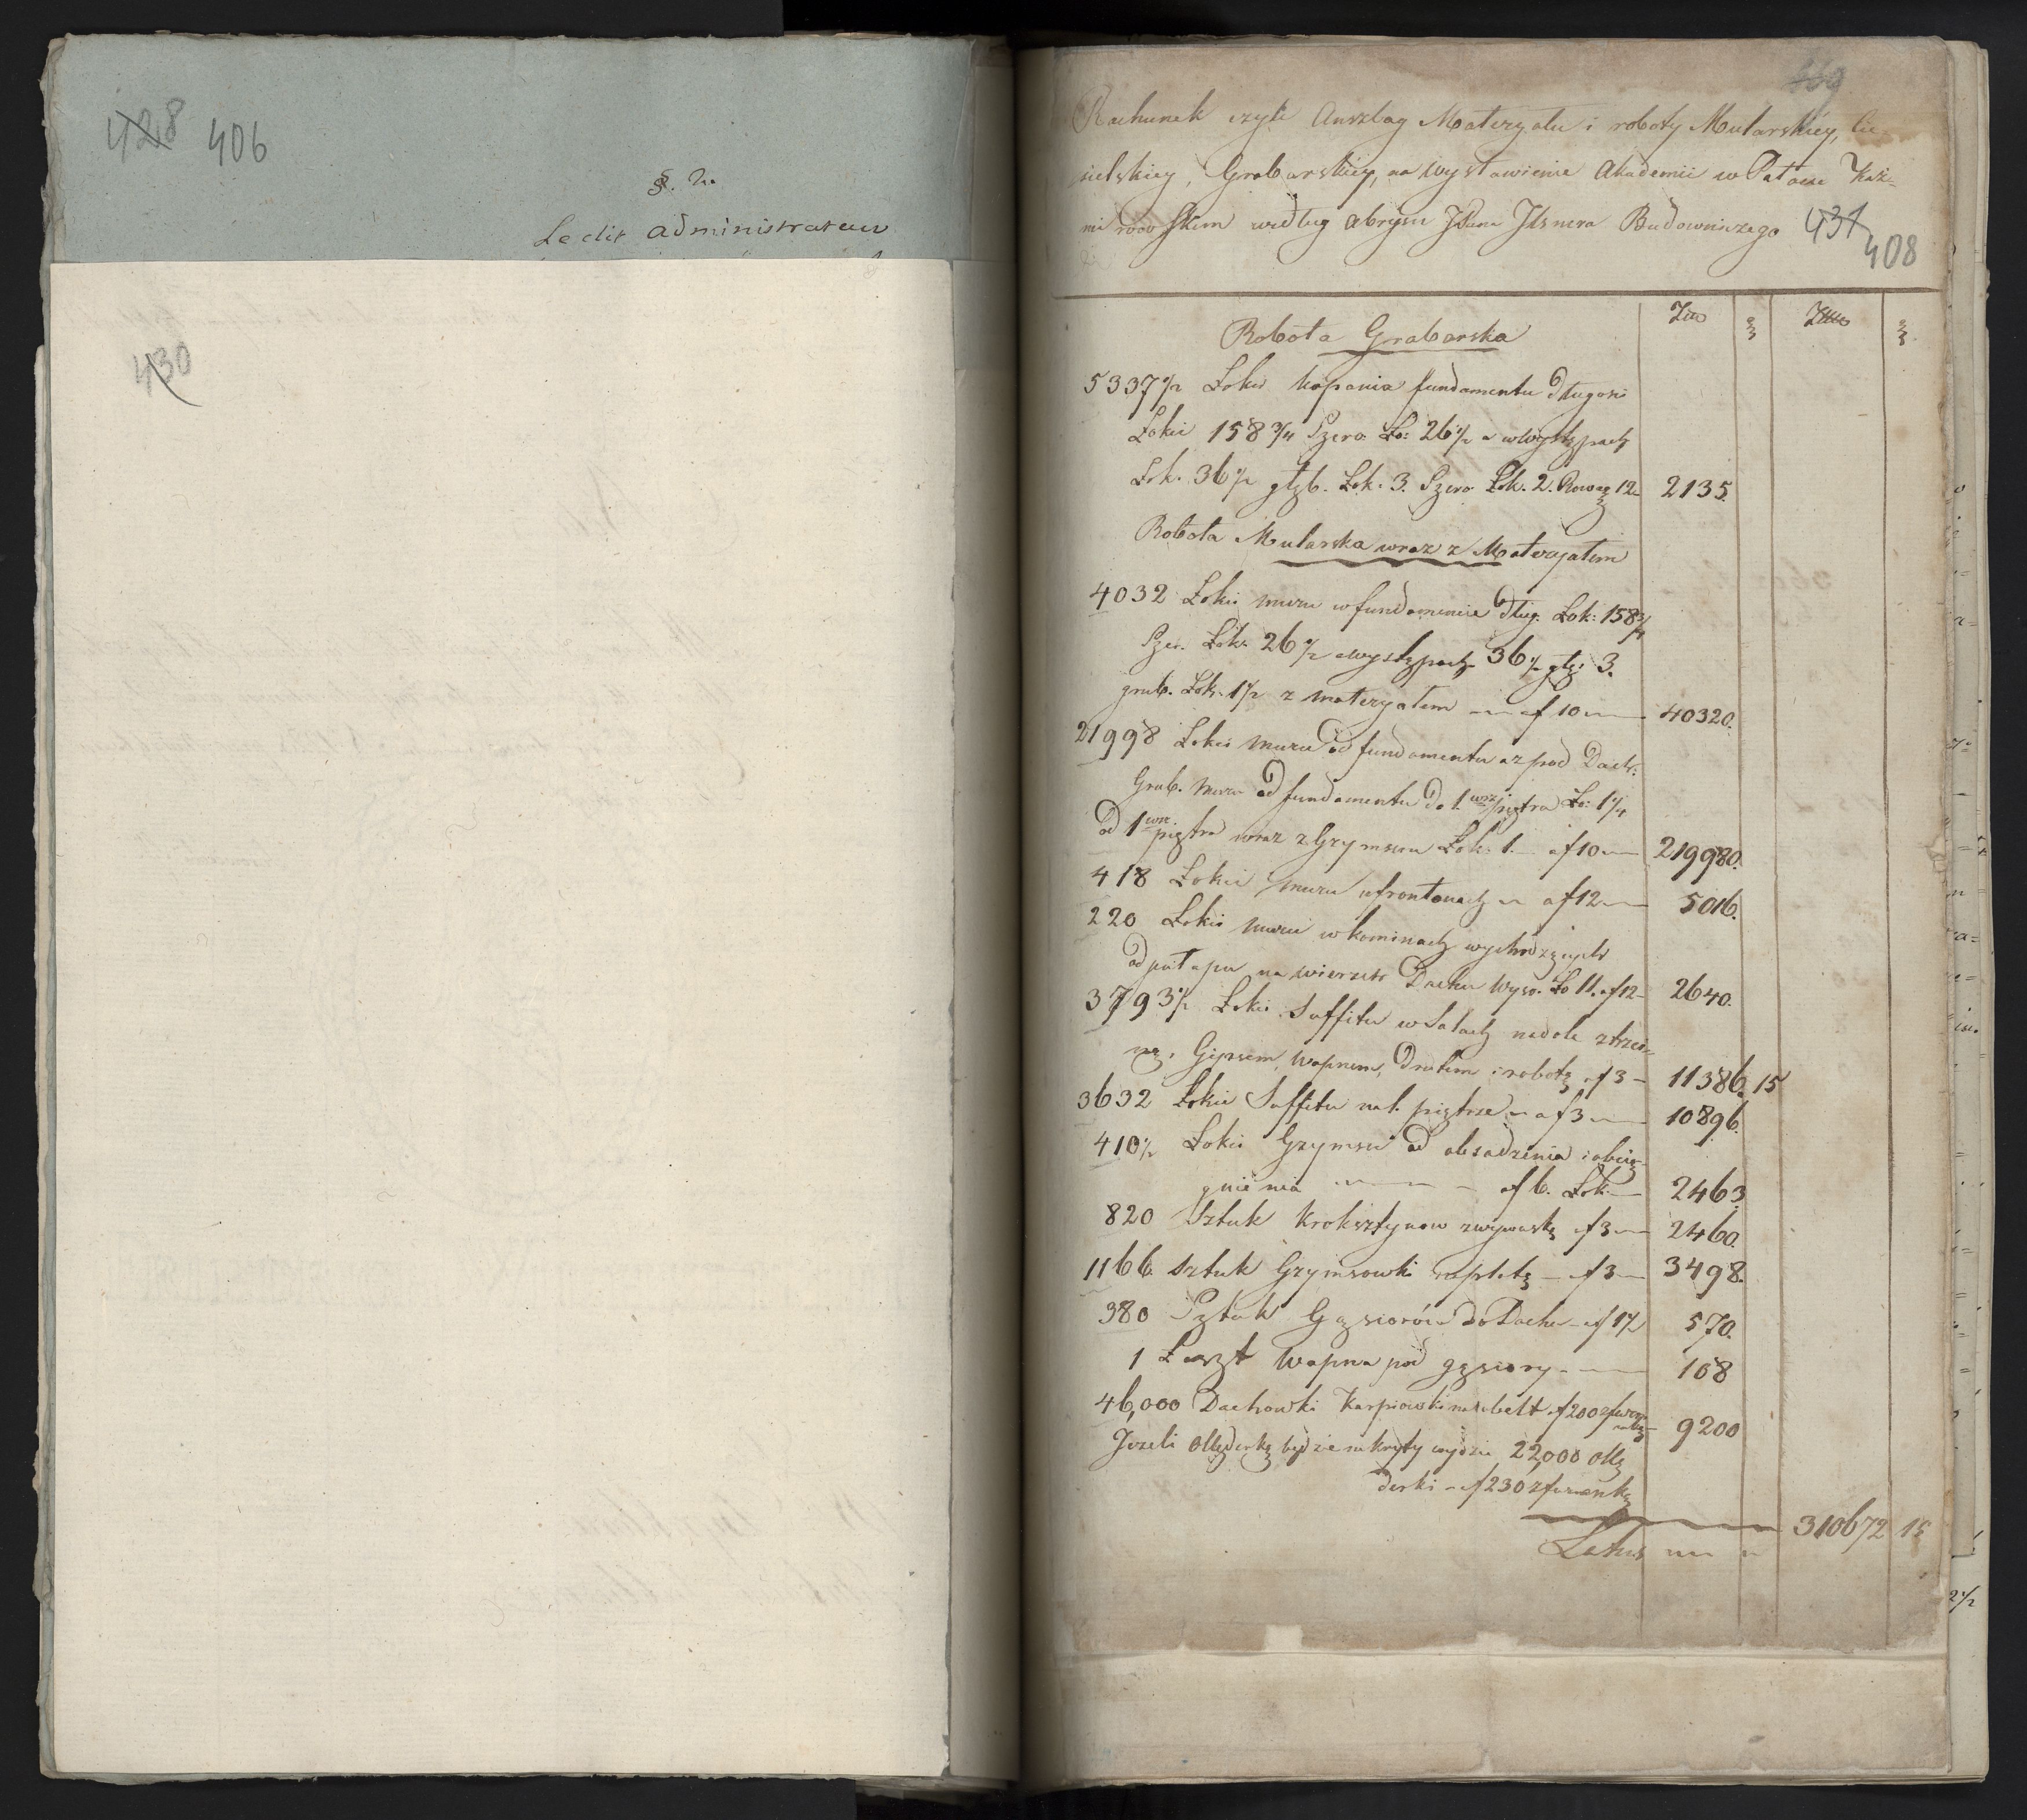 428 406
§. 2.
Le dit administrateur
430
469
Rachunek czyli Anszlag Materyału i roboty Mularskiey, Cie-
sielskiey, Grabarskiey, na wystawienie Akademii w Pałacu Kazi-
mirowskim według abrysu JPana Jtsnera Budowniczego
431
408
Robota Grabarska
5337 1/2 Łokci kopania fundamentu długości
Łokci 158 3/4 Szero. Ło: 26 1/2 a w występach
Łok. 36 1/2 głęb. Łok. 3. Szero Łok. 2. 12 2135.
Robota Mularska wraz z Materyałem
4032 Łokci muru w fundamencie dług. Łok: 158 3/4
Szer. Łok. 26 1/2 a występach 36 1/2 głę. 3.
grub. Łok. 1 1/2 z materyałem af 10 40320.
21998 Łokci muru od fundamentu az pod Dach:
Grub. muru od fundamentu do 1. wsz. piętra Ło: 1 1/4
od 1 wsz. piętra wraz z Grzymsem Łok: 1. af 10 219980.
418 Łokci muru w frontonach af 12 5016.
220 Łokci muru w kominach wychodzących
od pułapu na wierzch Dachu wyso. Ło 11. af 12 2640.
3793 1/2 Łokci Suffitu w Salach na dole z trzci-
ną, Gipsem, wapnem, Drutem i robotą af 3 11386. 15
3632 Łokci Suffitu na 1. piętrze af 3 10896.
410 1/2 Łokci Grzymsu od obsadzenia i obcią-
gnienia af 6. Łok. 2463
820 Sztuk Kroksztynow af 3 2460.
1166 Sztuk Grzymsowki af 3 3498.
380 Sztuk Gąsiorów do Dachu af 1 1/2 570.
1 Łaszt wapna pod gąsiory 108
46,000 Dachowki Karpiowki af 200 9200
Jezeli ollęderką będzie nakryty wyidzie 22,000 ollę
derki af 230 z furmanką
310672 15
Latus